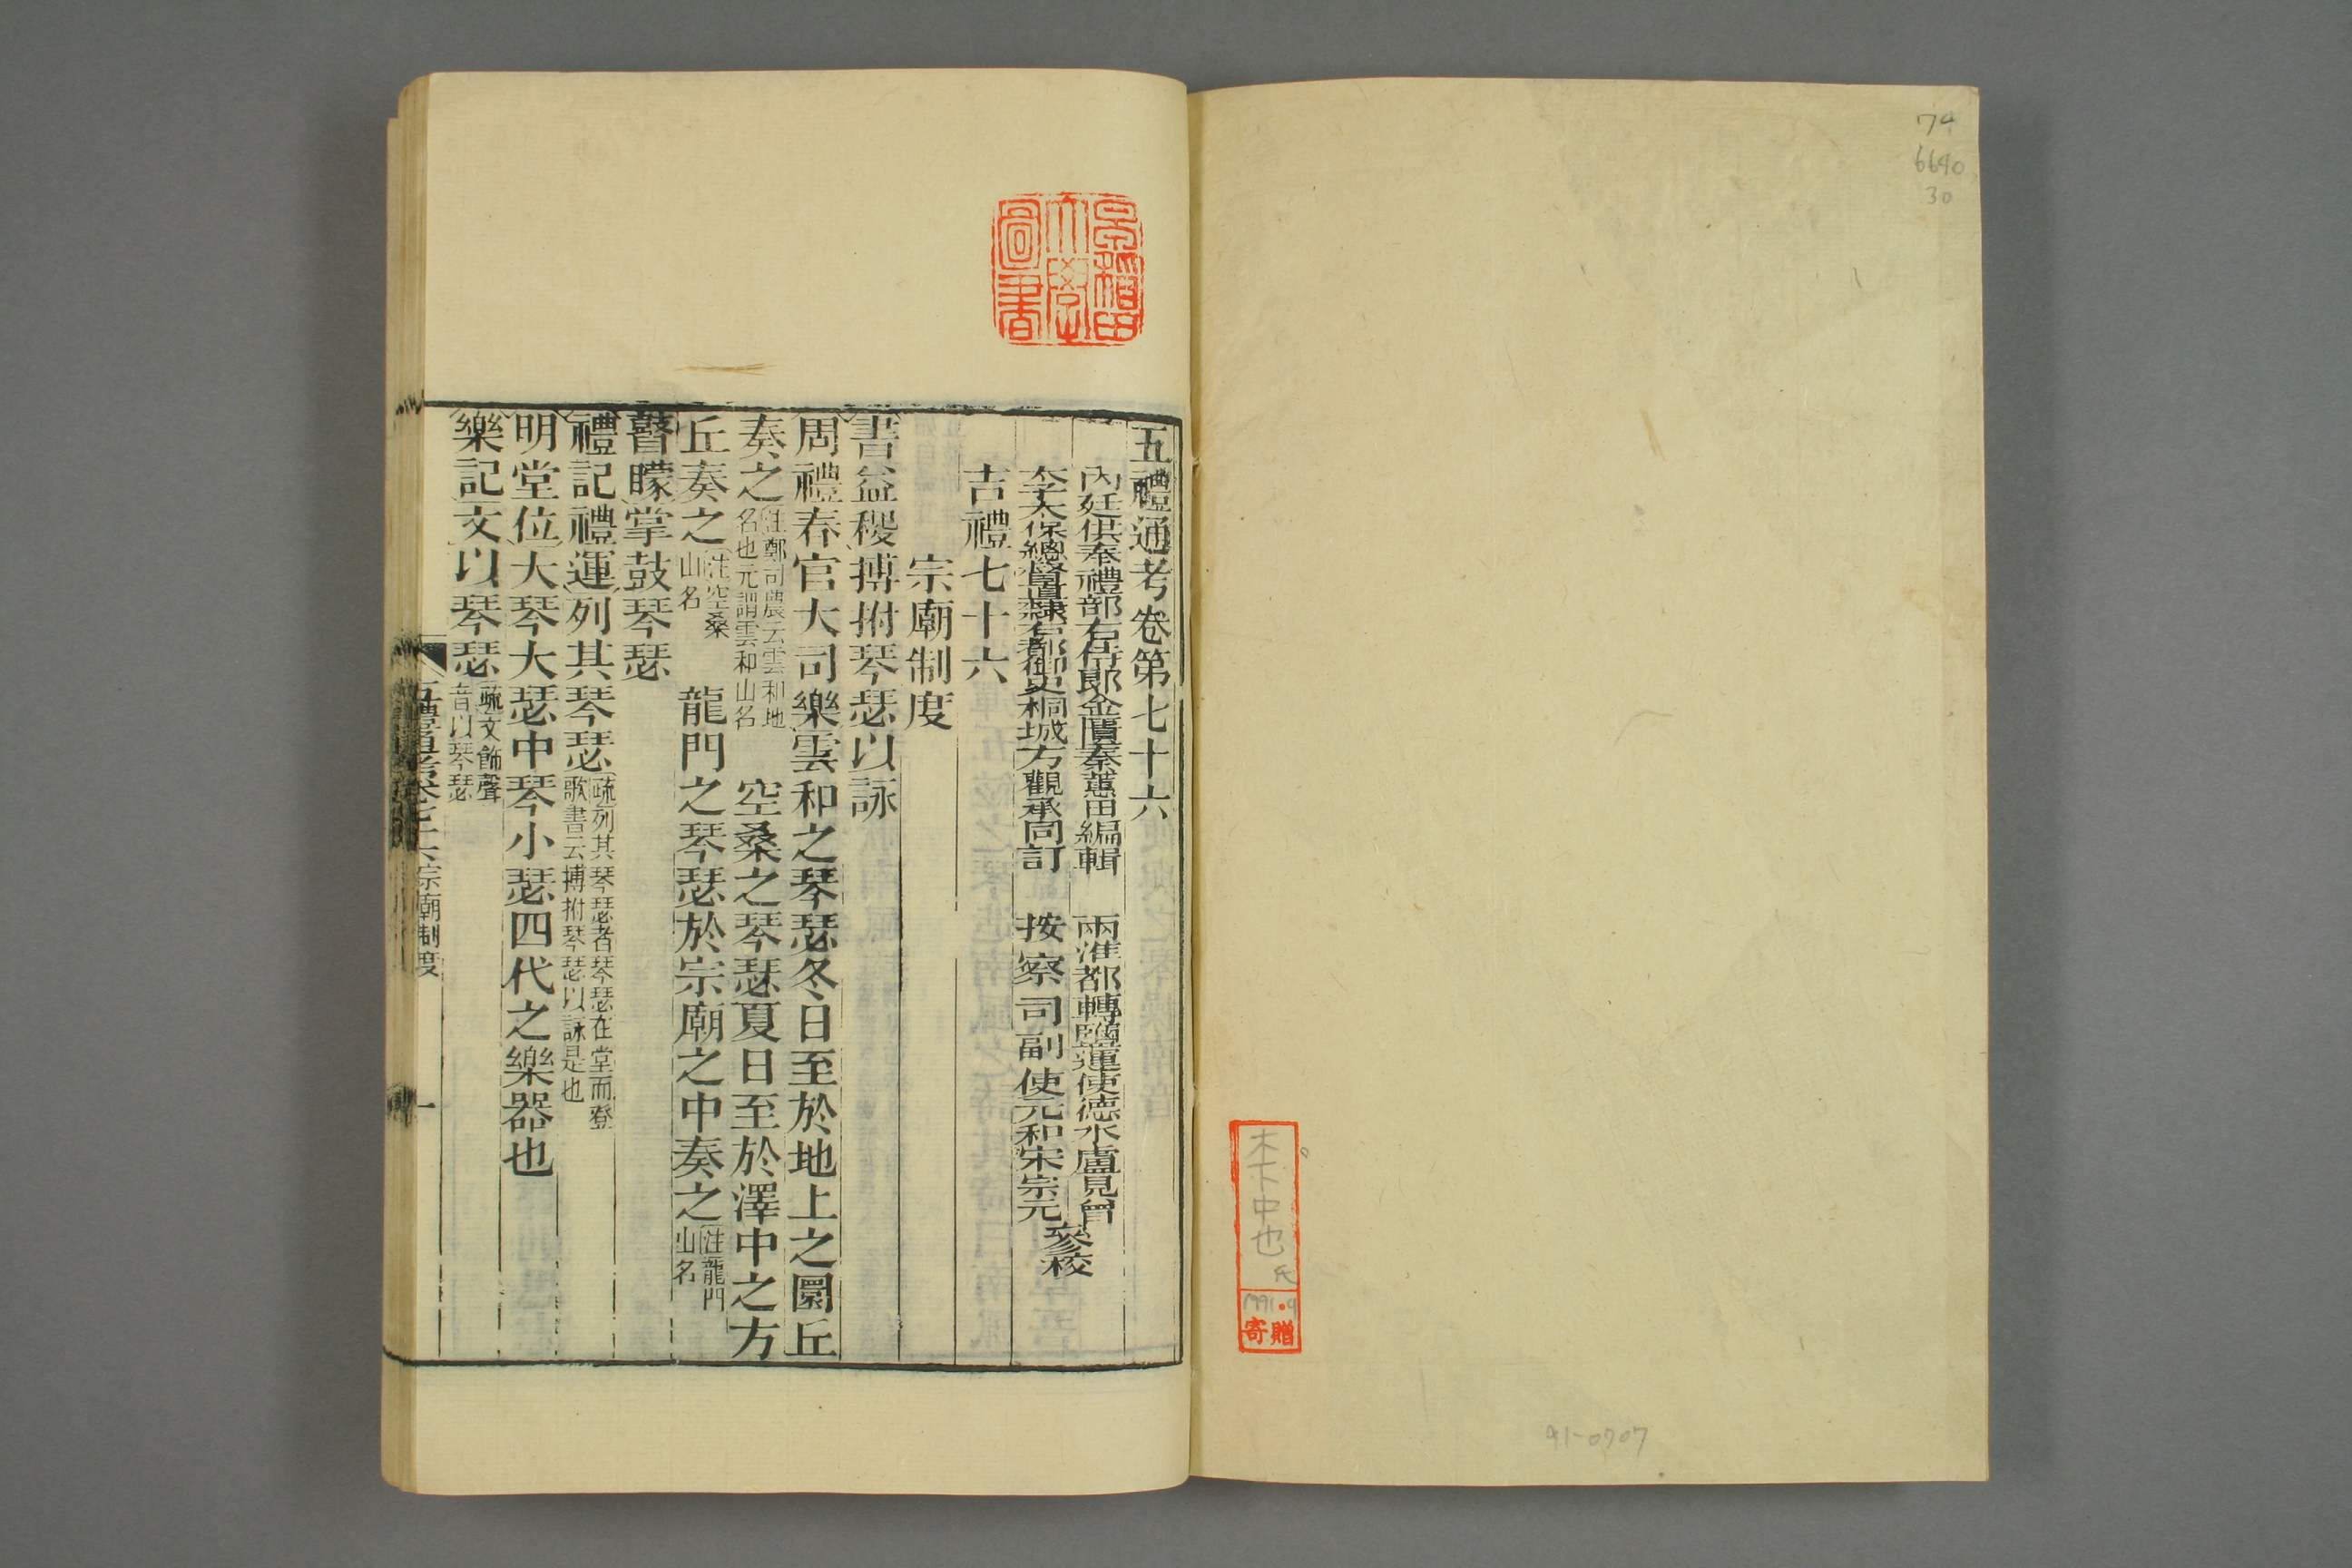 74
6640
30
木下中也氏
1991.9
寄贈
91-0707
早稲田大學圖書
五禮通考卷第七十六
內廷供奉禮部右侍郎金匱秦蕙田編輯
兩淮都轉鹽運使德水盧見曾
太保總督直隸右都御史桐城方觀承同訂
按察司副使元和宋宗元
參校
吉禮七十六
宗廟制度
書益稷搏拊琴瑟以詠
周禮春官大司樂雲和之琴瑟冬日至於地上之圜丘
奏之注鄭司農云雲和地名也元謂雲和山名 空桑之琴瑟夏日至於澤中之方
丘奏之注空桑山名 龍門之琴瑟於宗廟之中奏之注龍門山名
瞽矇掌鼓琴瑟
禮記禮運列其琴瑟疏列其琴瑟者琴瑟在堂而登歌書云搏拊琴瑟以詠是也
明堂位大琴大瑟中琴小瑟四代之樂器也
樂記文以琴瑟疏文飾聲音以琴瑟
五禮通考卷七十六宗廟制度
一